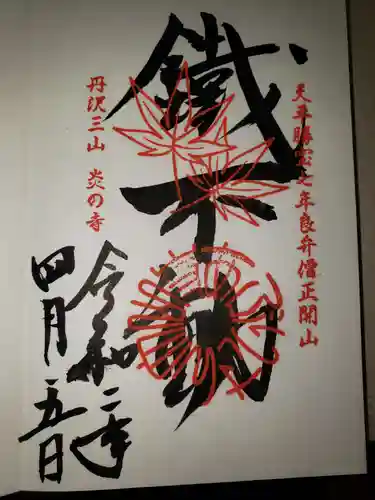 天平勝宝七年良弁僧正開山
鐵不動
丹沢三山 炎の寺
令和二年
四月二五日